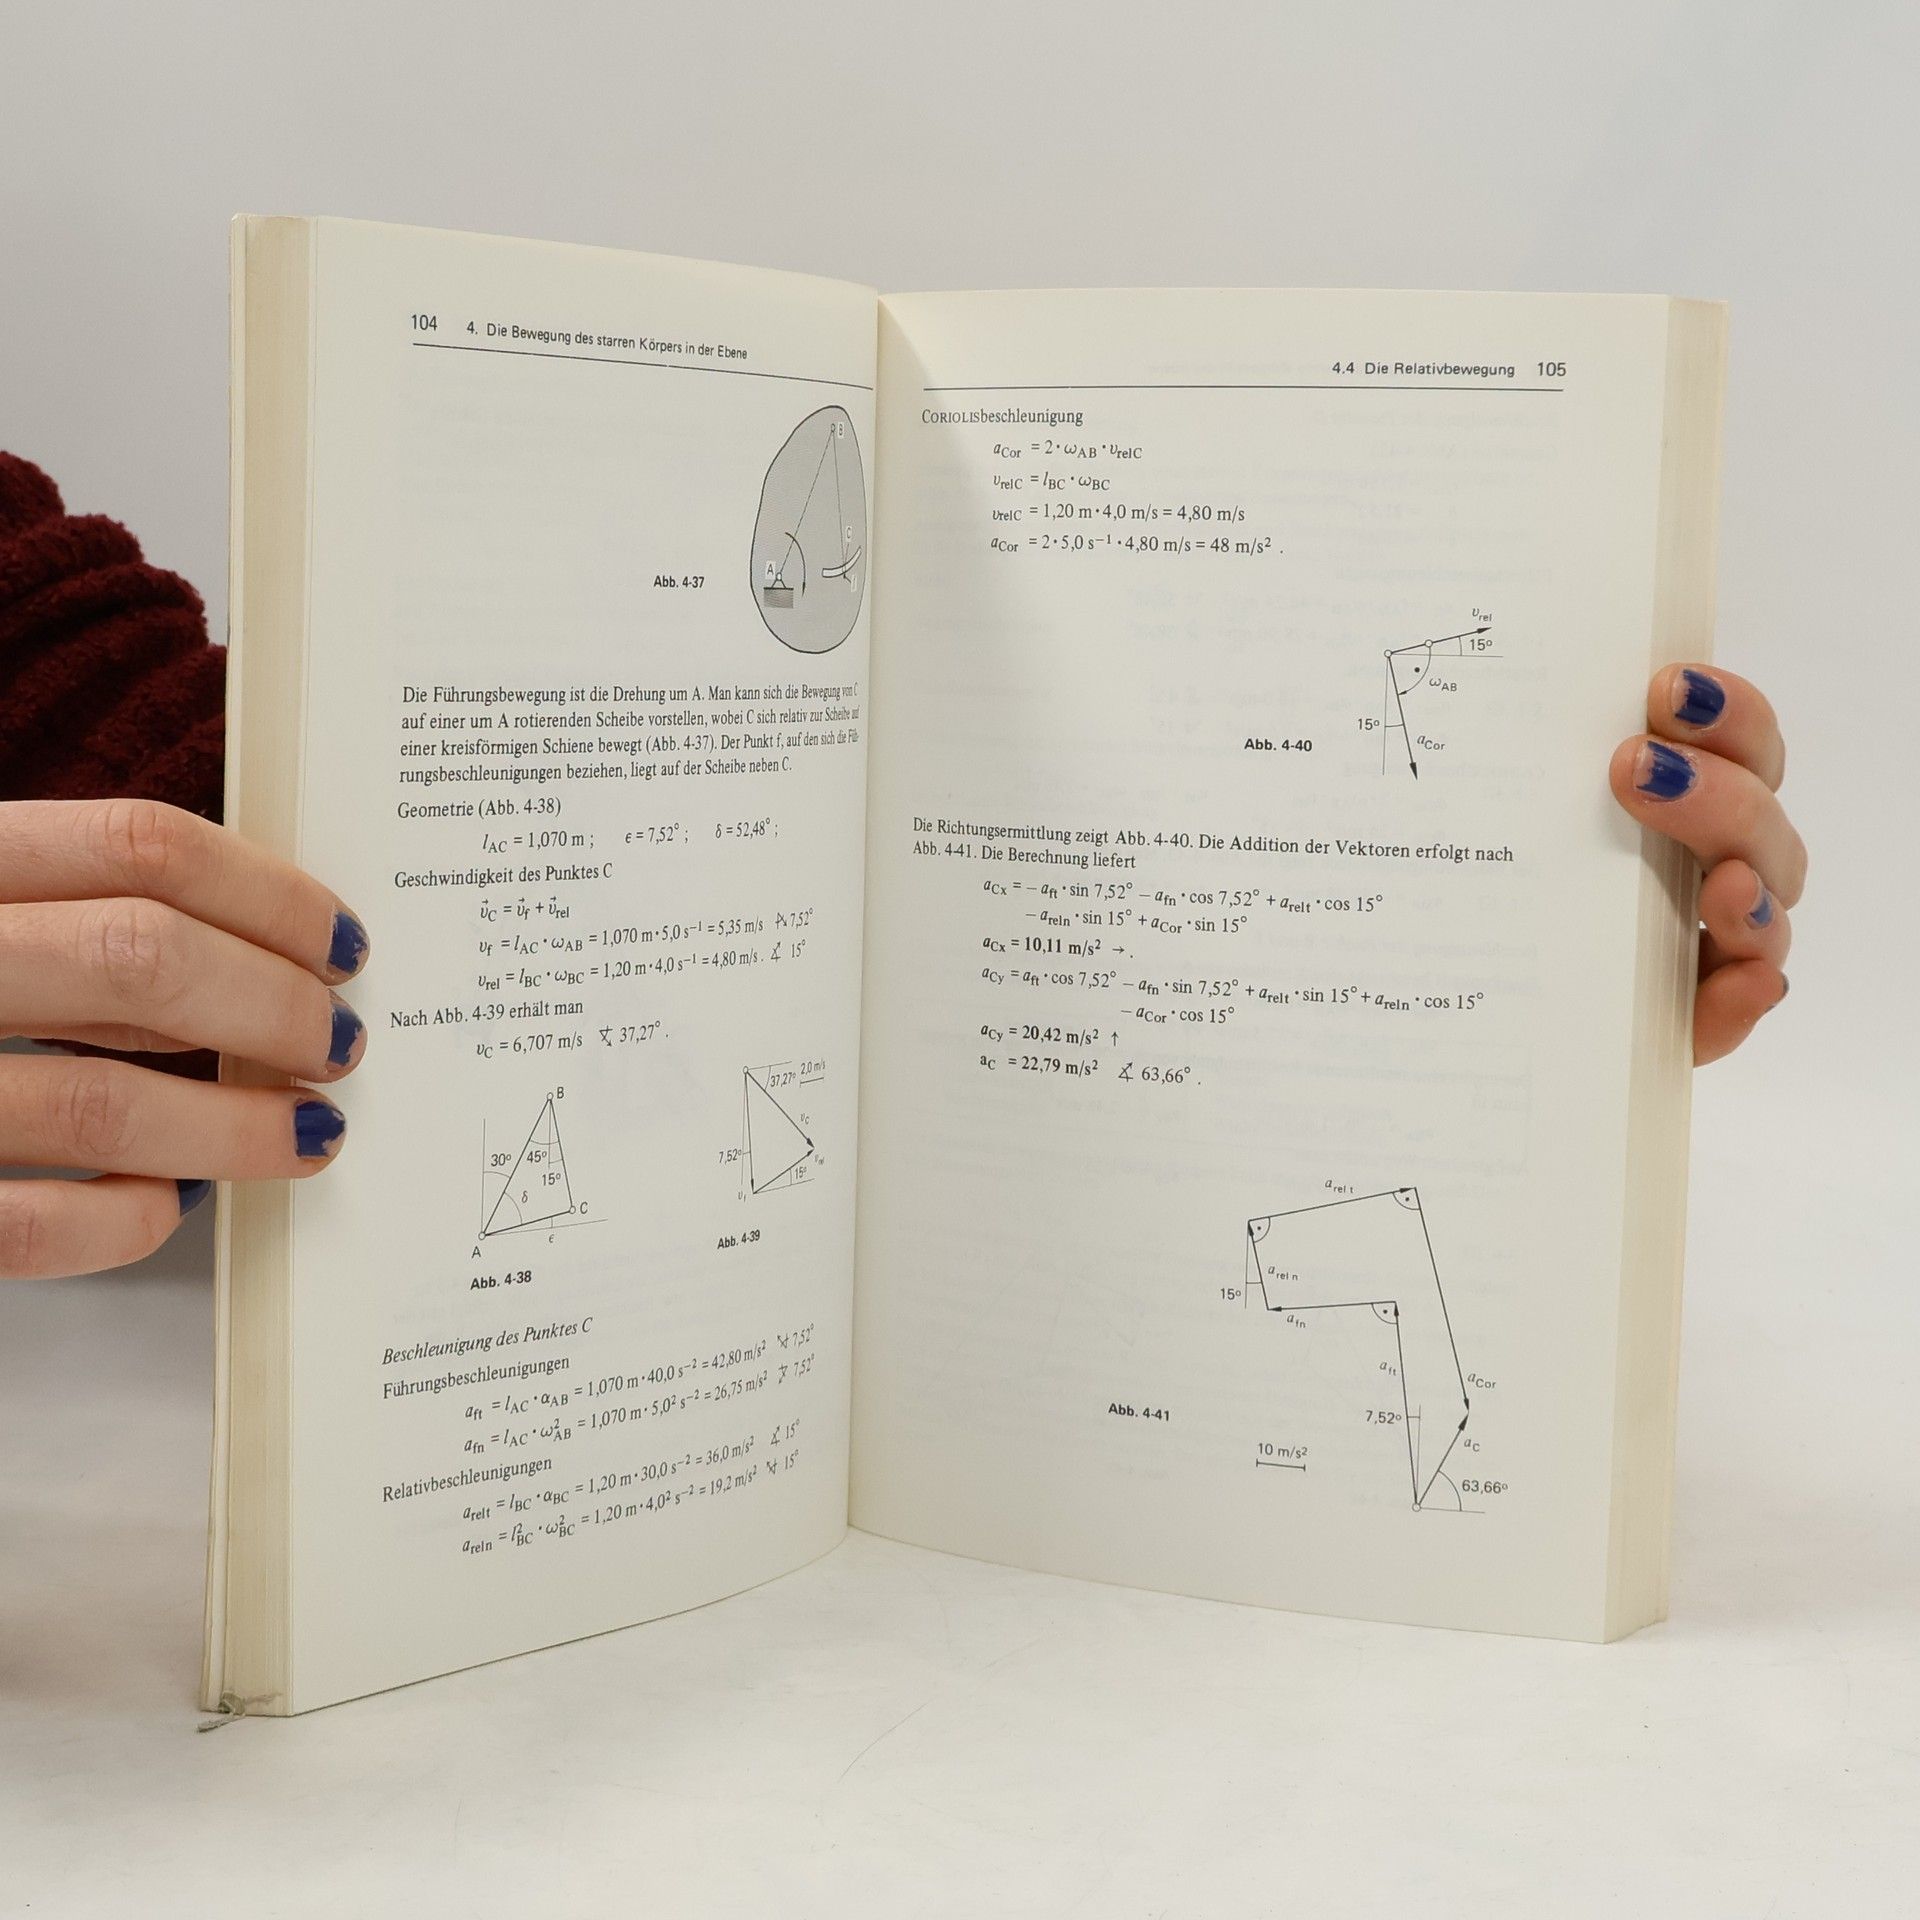 104 4. Die Bewegung des starren Körpers in der Ebene
B
C
A
f
Abb. 4-37
Die Führungsbewegung ist die Drehung um A. Man kann sich die Bewegung von C
auf einer um A rotierenden Scheibe vorstellen, wobei C sich relativ zur Scheibe auf
einer kreisförmigen Schiene bewegt (Abb. 4-37). Der Punkt f, auf den sich die Füh-
rungsbeschleunigungen beziehen, liegt auf der Scheibe neben C.
Geometrie (Abb. 4-38)
l_AC = 1,070 m ; ϵ = 7,52° ; δ = 52,48° ;
Geschwindigkeit des Punktes C
v⃗_C = v⃗_f + v⃗_rel
v_f = l_AC · ω_AB = 1,070 m · 5,0 s⁻¹ = 5,35 m/s 7,52°
v_rel = l_BC · ω_BC = 1,20 m · 4,0 s⁻¹ = 4,80 m/s . ∡ 15°
Nach Abb. 4-39 erhält man
v_C = 6,707 m/s ∡ 37,27° .
B
30° 45°
15°
δ
C
A
ϵ
Abb. 4-38
37,27° 2,0 m/s
v_C
7,52°
v_rel
15°
v_f
Abb. 4-39
Beschleunigung des Punktes C
Führungsbeschleunigungen
a_ft = l_AC · α_AB = 1,070 m · 40,0 s⁻² = 42,80 m/s² 7,52°
a_fn = l_AC · ω²_AB = 1,070 m · 5,0² s⁻² = 26,75 m/s² 7,52°
Relativbeschleunigungen
a_relt = l_BC · α_BC = 1,20 m · 30,0 s⁻² = 36,0 m/s² ∡ 15°
a_reln = l²_BC · ω²_BC = 1,20 m · 4,0² s⁻² = 19,2 m/s² 15°
4.4 Die Relativbewegung 105
CORIOLISbeschleunigung
a_Cor = 2 · ω_AB · v_relC
v_relC = l_BC · ω_BC
v_relC = 1,20 m · 4,0 m/s = 4,80 m/s
a_Cor = 2 · 5,0 s⁻¹ · 4,80 m/s = 48 m/s² .
v_rel
15°
ω_AB
15°
a_Cor
Abb. 4-40
Die Richtungsermittlung zeigt Abb. 4-40. Die Addition der Vektoren erfolgt nach
Abb. 4-41. Die Berechnung liefert
a_Cx = − a_ft · sin 7,52° − a_fn · cos 7,52° + a_relt · cos 15°
− a_reln · sin 15° + a_Cor · sin 15°
a_Cx = 10,11 m/s² → .
a_Cy = a_ft · cos 7,52° − a_fn · sin 7,52° + a_relt · sin 15° + a_reln · cos 15°
− a_Cor · cos 15°
a_Cy = 20,42 m/s² ↑
a_C = 22,79 m/s² ∡ 63,66° .
a_rel t
a_rel n
15°
a_fn
a_ft
a_Cor
7,52°
a_C
63,66°
Abb. 4-41
10 m/s²